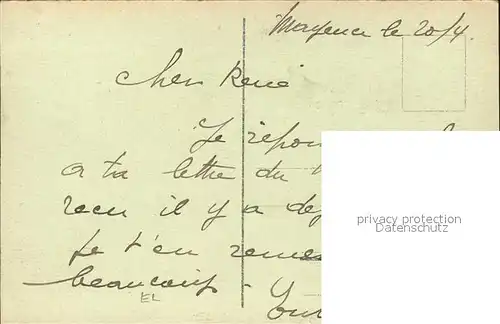 Mayence le 20/4
Cher René
Je répon
a ta lettre du
recu il y a de
Je t'en reme
beaucoup -
privacy protection
Datenschutz
EL